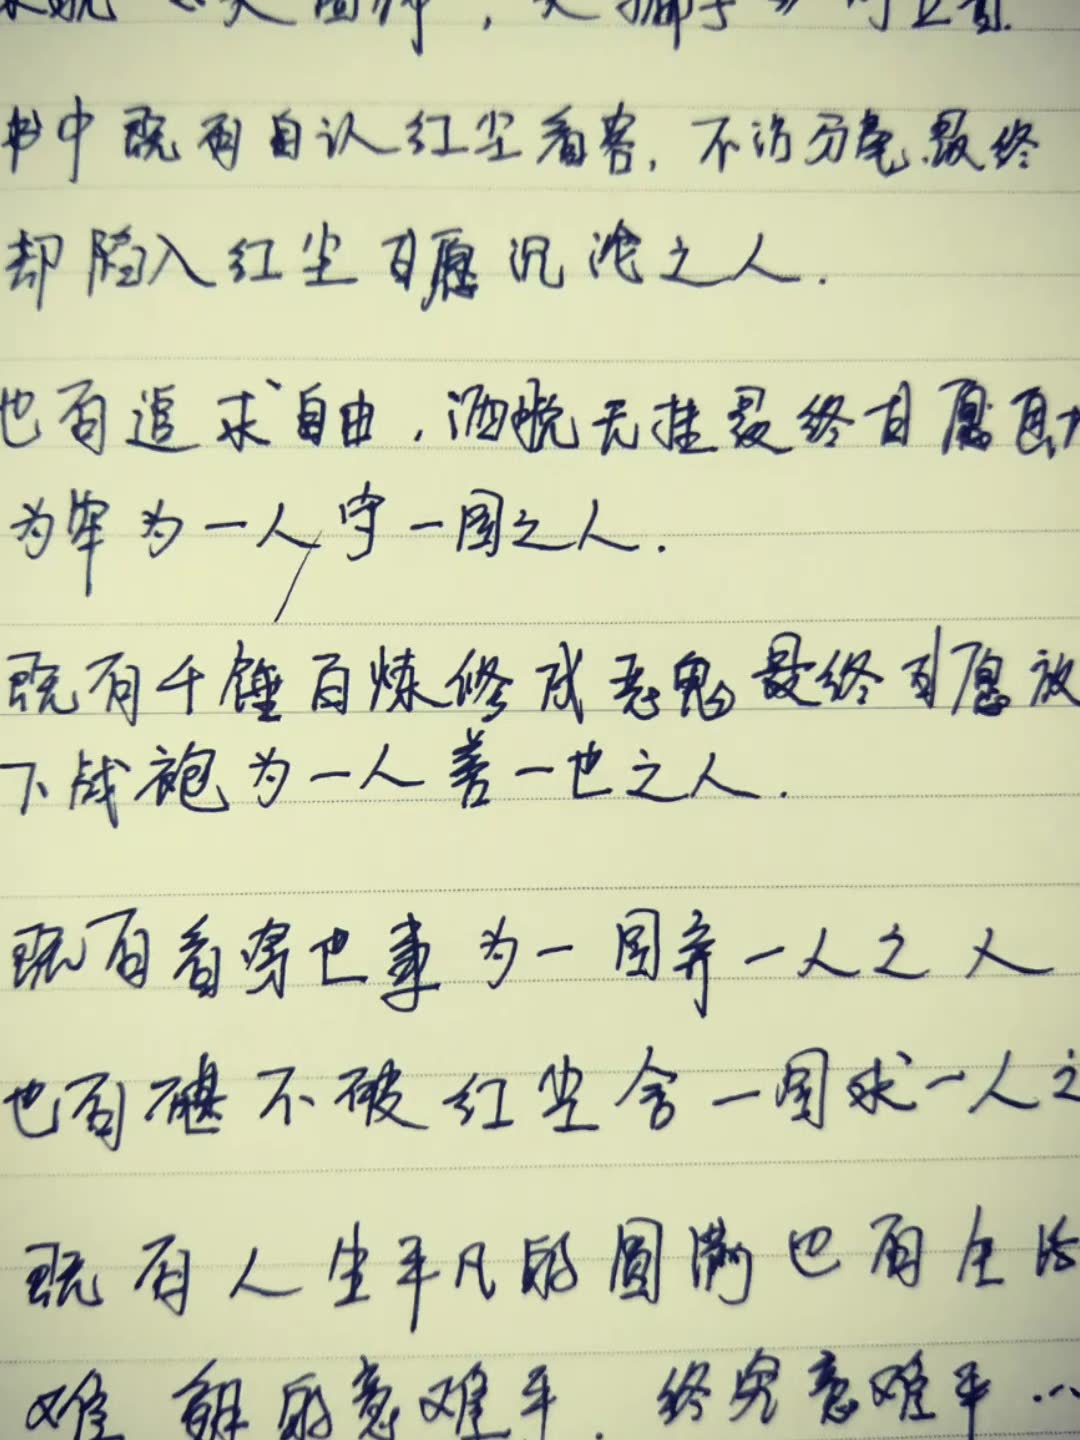 书中既有自认红尘看客,不沾分毫,最终
却陷入红尘自愿沉沦之人.
也有追求自由,洒脱无挂最终自愿画
为牢为一人守一国之人.
既有千锤百炼修成恶鬼最终自愿放
下战袍为一人善一世之人.
既有看穿世事为一国弃一人之人
也有 不破红尘舍一国求一人之
既有人生平凡的圆满也有生活
难 的意难平. 终究意难平...